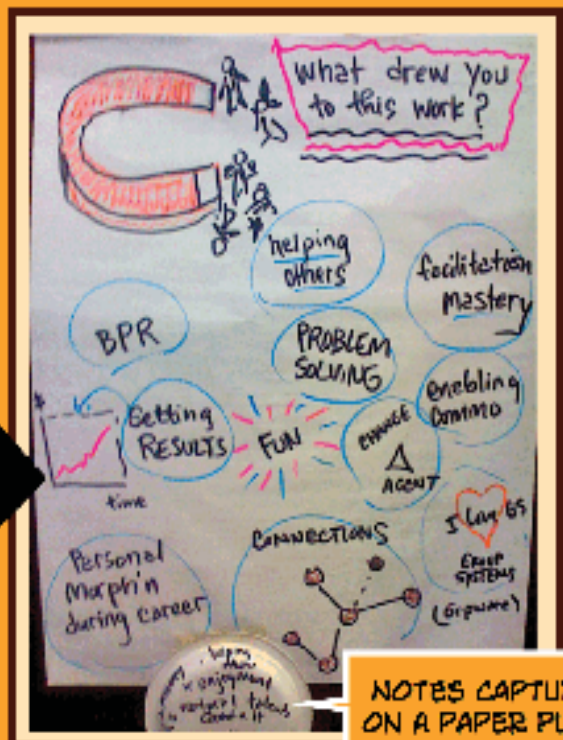 What drew you
to this work?
helping
others
facilitation
mastery
BPR
PROBLEM
SOLVING
enabling
commo
Getting
RESULTS
FUN
CHANGE
AGENT
$
time
I love GS
GROUP
SYSTEMS
(Grpware)
CONNECTIONS
Personal
Morph'n
during career
helping
others
enjoyment
natural talent
NOTES CAPTU
ON A PAPER PL